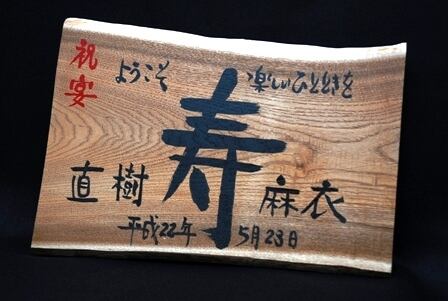 祝宴
ようこそ
楽しいひとときを
寿
直樹
麻衣
平成22年 5月23日